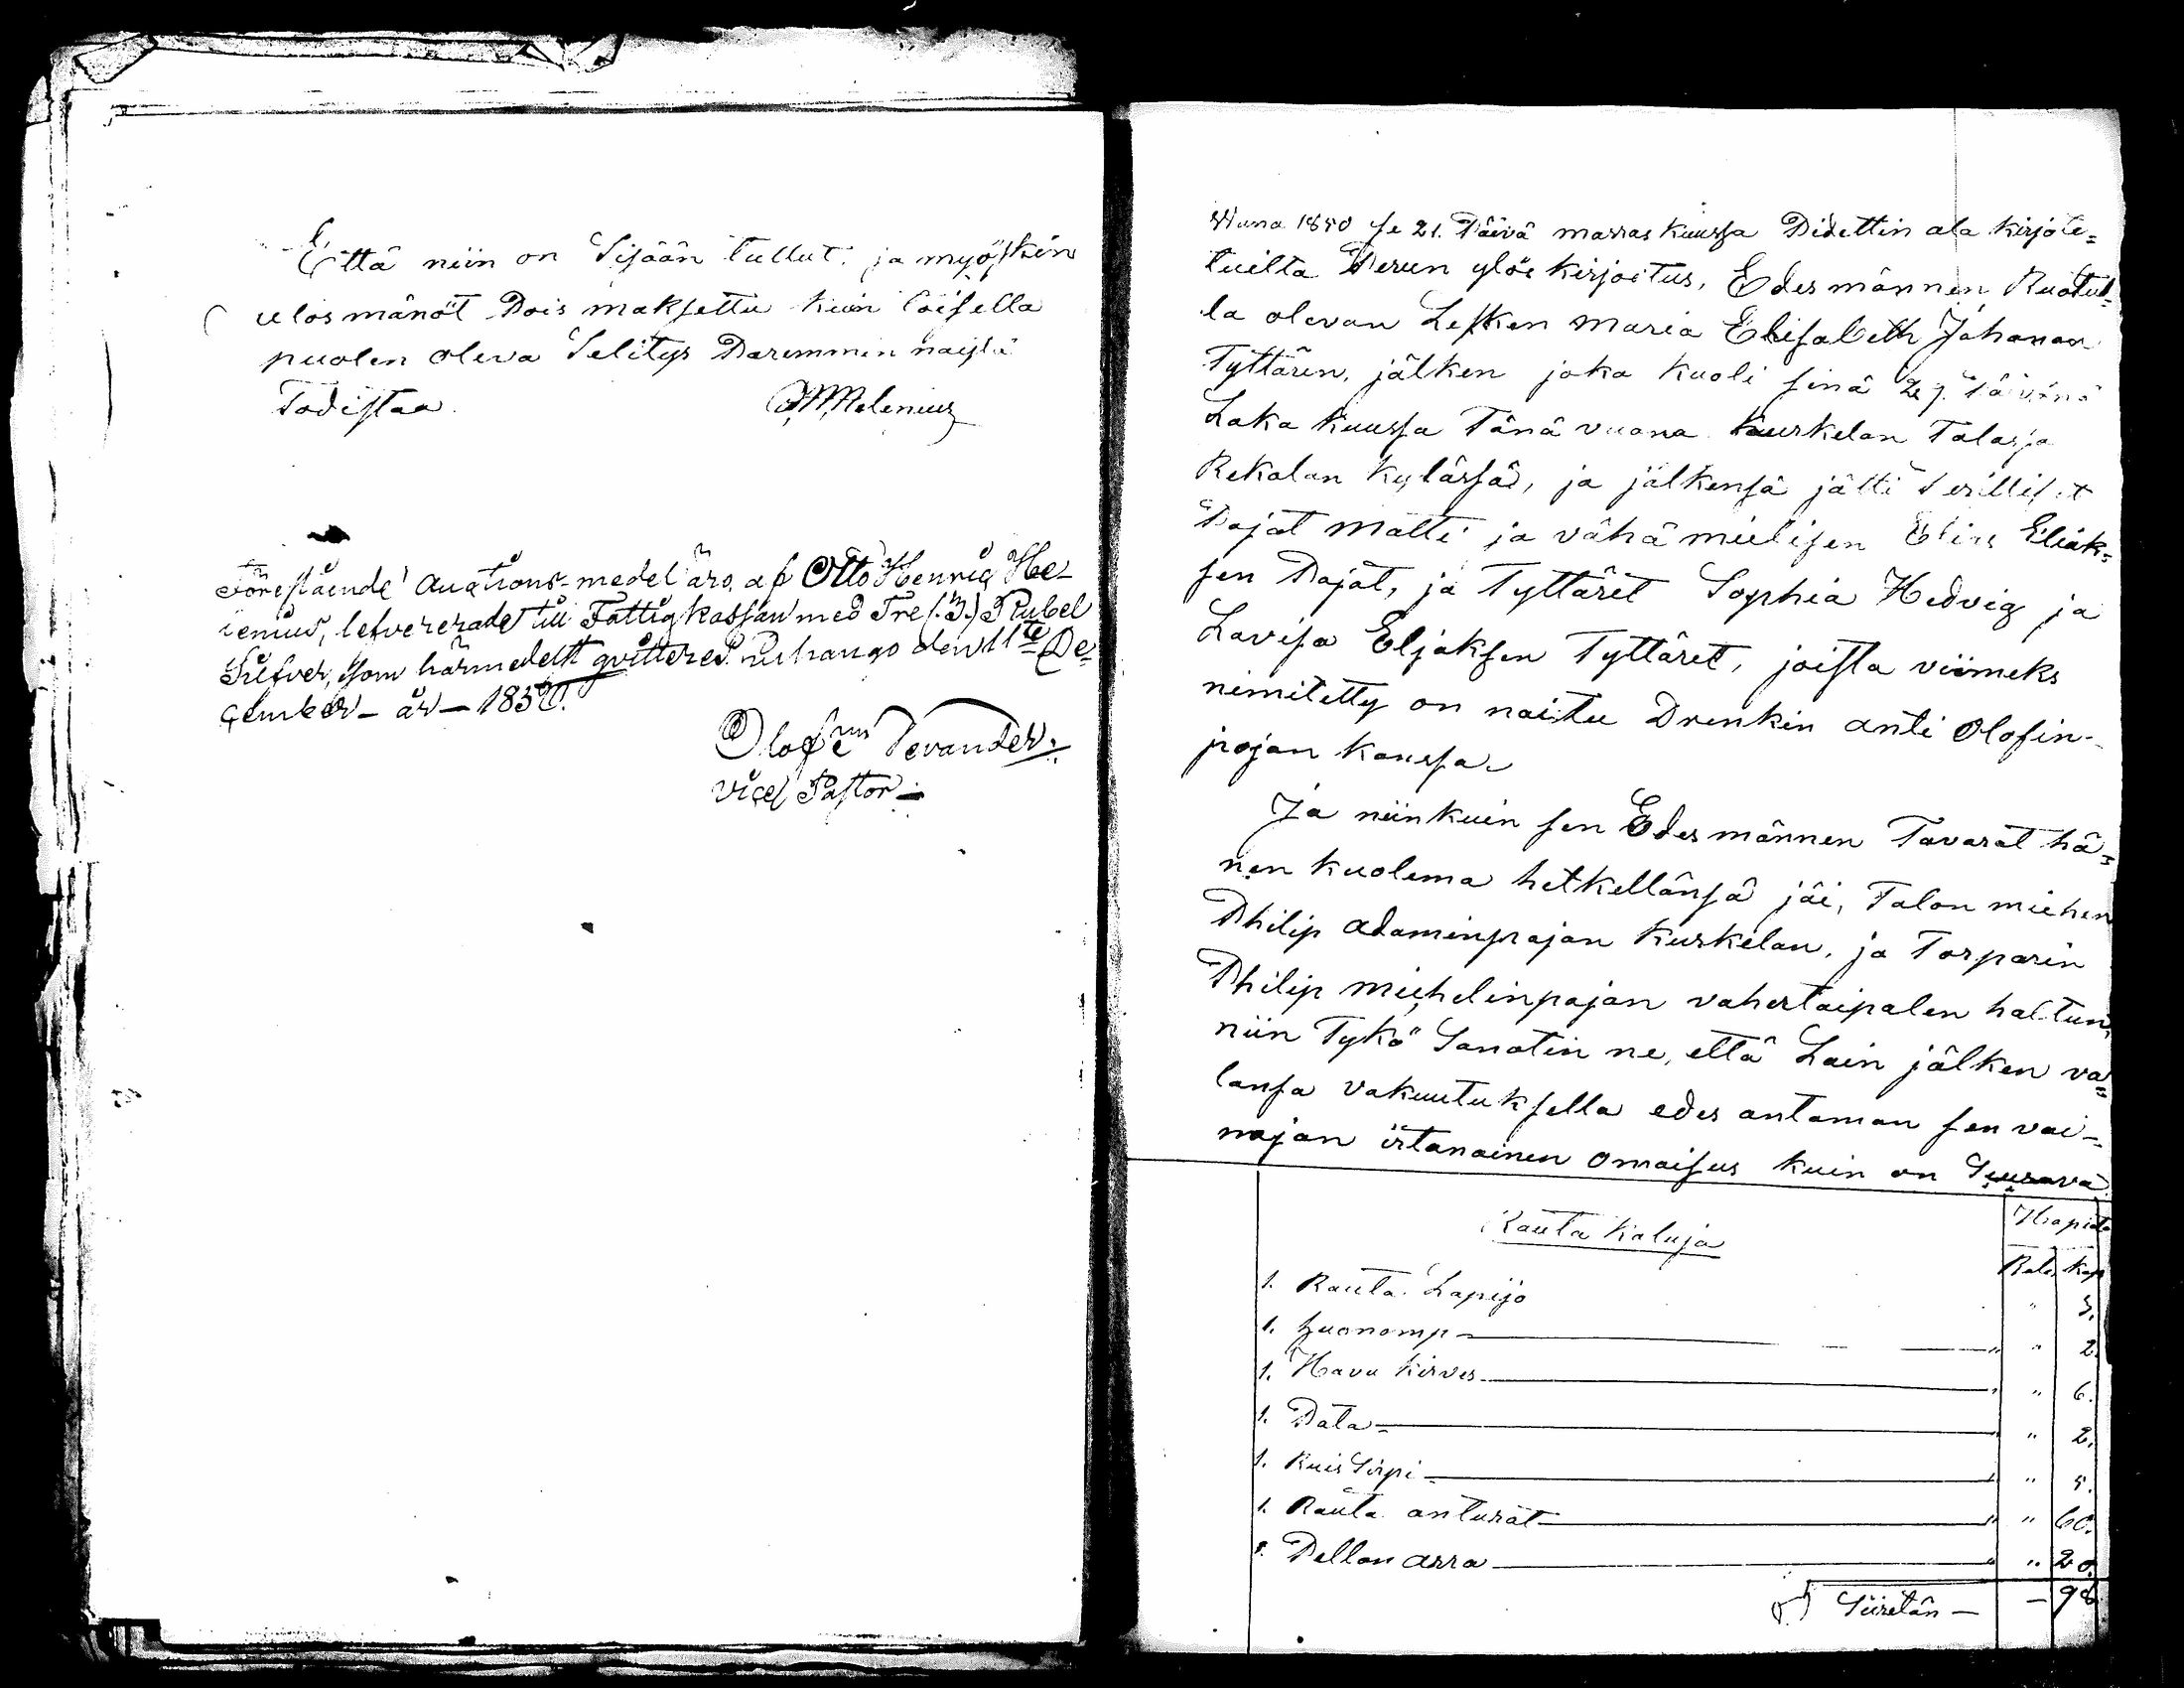 Että niin on Sisään tullut. ja myöskin
ulosmänöt Pois maksettu kuin toisella
puolen oleva Selitys Paremmin näistä
Todistaa
Förestående Auctions-medel äro af Otto Henric He-
lenius, lefvererade till Fattigkassan med Tre (:3.) Rubel
Silfver, som härmedelst qvitteres. den 11te De-
cember - år - 1850.
Olof Devander.
Vice Pastor -
Wuna 1850 se 21. Päivä marraskuussa Pidettin ala kirjote=
tuilta Perun ylös kirjoitus, Edesmännen Ruotul=
la olevan Lesken Maria Elisabeth Johanan
Tyttären, jälken joka kuoli sinä 27. Päivänä
Loka kuussa Tänä vuona Kurskelan Talossa
Rekolan kylässä, ja jälkensä jätti Perilliset
Pojat Matti ja vähä mielisen Elias Eliak=
sen Pojat, ja Tyttäret Sophia Hedvig ja
Lovisa Eljaksen Tyttäret, joista viimeks
nimitetty on naitu Drenkin anti Olofin-
pojan kanssa.
Ja niinkuin sen Edesmännen Tavarat hä=
nen kuolema hetkellänsä jäi, Talon miehen
Philip Adaminpojan Kurkelan, ja Torparin
Philip Michelinpojan vahertaipalen haltun,
niin Tykö Sanotin ne, että Lain jälken va=
lansa vakuutuksella edes antaman sen vai-
najan irtanainen omaisus kuin on Seurava.
Rauta Kaluja
Hopiata
Rub. Kop
1. Rauta Lapijo " 3.
1. Luonomp " 2.
1. Havu Kirves " 6.
1. Pata " 2.
1. Ruis Sirpi " 5.
1. Rauta anturat " 60.
1. Pellon arra " 20.
Siiretän - - 98